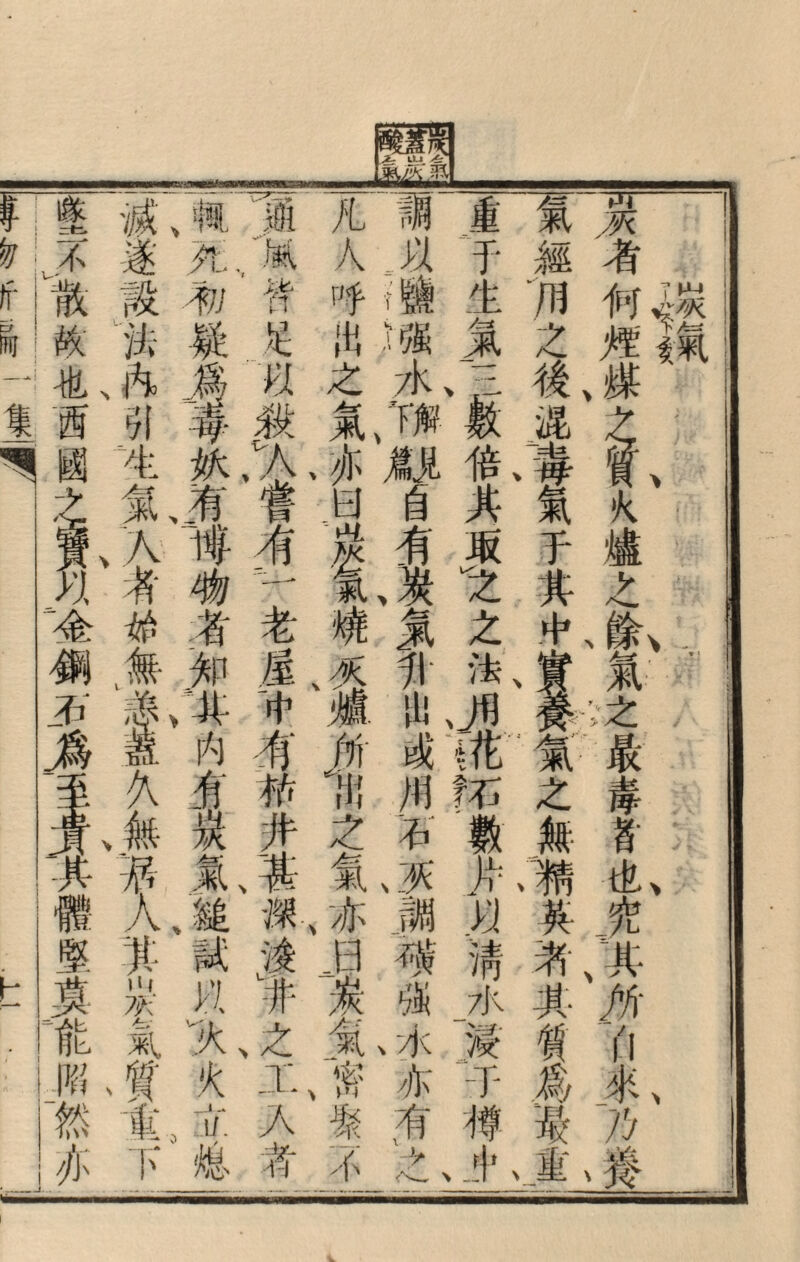 炭氣
蓋炭
酸氣
炭氣
炭者何煙煤之質火燼之餘氣之最毒者也究其所自來乃養
氣經用之後混毒氣于其中實養氣之無精英者其質爲最重
重于生氣三數倍其取之之法用花石數片以淸水浸于樽中
調以鹽强水解見下篇自有炭氣升出或用石灰調磺强水亦有之
凡人呼出之氣亦曰炭氣燒灰爐所出之氣亦曰炭氣密聚不
通風皆足以殺人嘗有一老屋中有枯井甚深浚井之工人者
輒死初疑爲毒妖有博物者知其内有炭氣縋試以火火立熄
滅遂設法内引生氣入者始無恙蓋久無居人其炭氣質重下
墜不散故也西國之寶以金鋼石爲至貴其體堅莫能陷然亦
博物新編一集